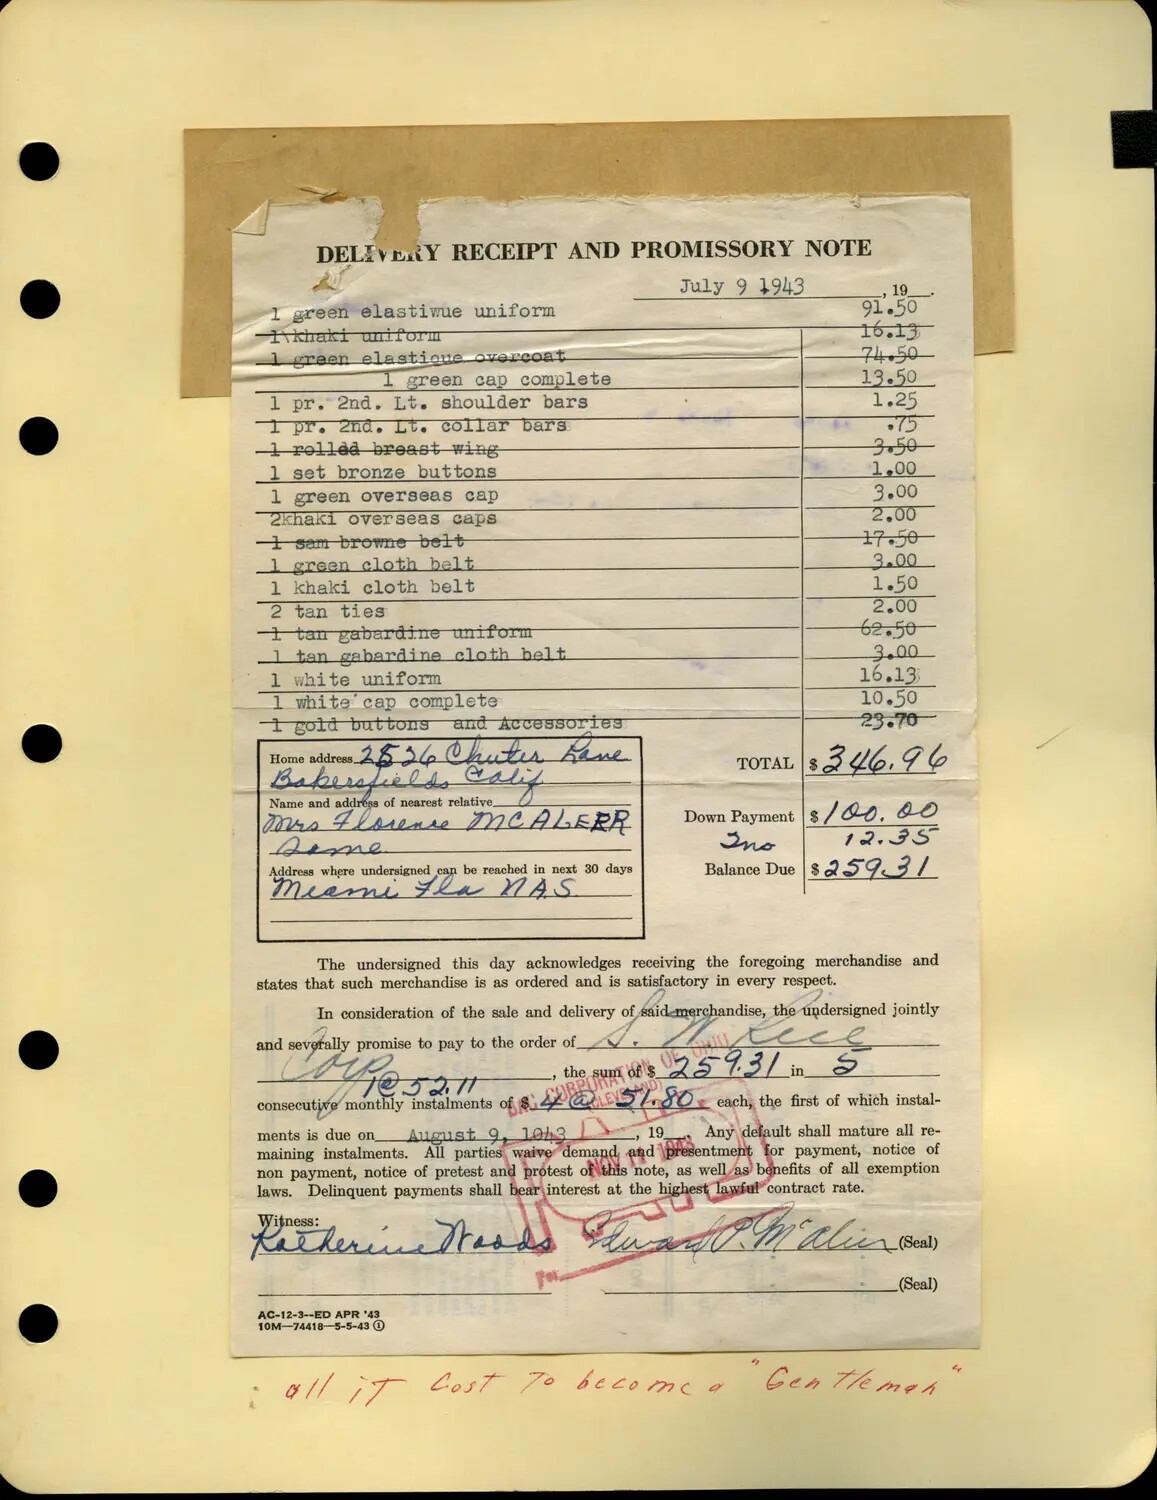 DELIVERY RECEIPT AND PROMISSORY NOTE
July 9 1943, 19__.
1 green elastiwue uniform 91.50
1 khaki uniform 16.13
1 green elastique overcoat 74.50
1 green cap complete 13.50
1 pr. 2nd. Lt. shoulder bars 1.25
1 pr. 2nd. Lt. collar bars .75
1 rolled breast wing 3.50
1 set bronze buttons 1.00
1 green overseas cap 3.00
2khaki overseas caps 2.00
1 sam browne belt 17.50
1 green cloth belt 3.00
1 khaki cloth belt 1.50
2 tan ties 2.00
1 tan gabardine uniform 62.50
1 tan gabardine cloth belt 3.00
1 white uniform 16.13
1 white cap complete 10.50
1 gold buttons and Accessories 23.70
Home address 2526 Chuter Lane
Bakersfields Calif
TOTAL $346.96
Name and address of nearest relative
Mrs Florence MCALEER
Down Payment $100.00
Same
Ins 12.35
Address where undersigned can be reached in next 30 days
Balance Due $259.31
Miami Fla NAS
The undersigned this day acknowledges receiving the foregoing merchandise and
states that such merchandise is as ordered and is satisfactory in every respect.
In consideration of the sale and delivery of said merchandise, the undersigned jointly
and severally promise to pay to the order of S. W. Rice
Corp, the sum of $ 259.31 in 5
1@ 52.11
consecutive monthly instalments of $ 4 @ 51.80 each, the first of which instal-
ments is due on August 9, 1943, 19__. Any default shall mature all re-
maining instalments. All parties waive demand and presentment for payment, notice of
non payment, notice of pretest and protest of this note, as well as benefits of all exemption
laws. Delinquent payments shall bear interest at the highest lawful contract rate.
CORPORATION OF OHIO
(CLEVELAND)
PAID
NOV 11 1943
For
Witness:
Katherine Woods Edward P. McAleer (Seal)
(Seal)
AC-12-3--ED APR '43
10M—74418—5-5-43 ①
all iT Cost To become a "Gentleman"